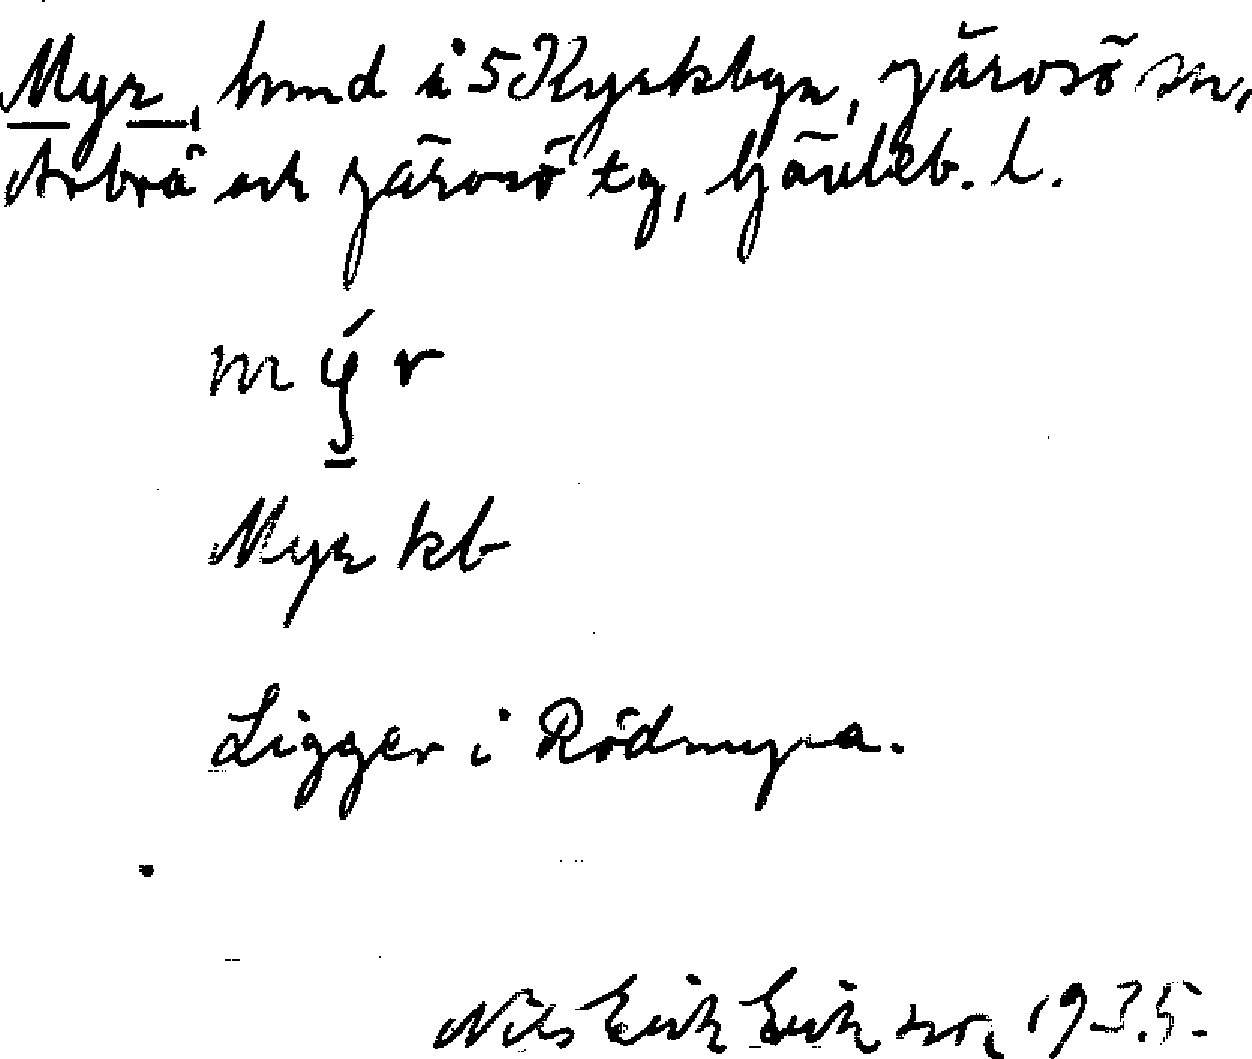 Myr, hmd å 5 Kyrkbyn, Järvsö sn,
Arbrå och Järvsö tg, Gävleb. l.
mýr
Myr kb
Ligger i Rödmyra.
Nils Erik Erikson, 1935.